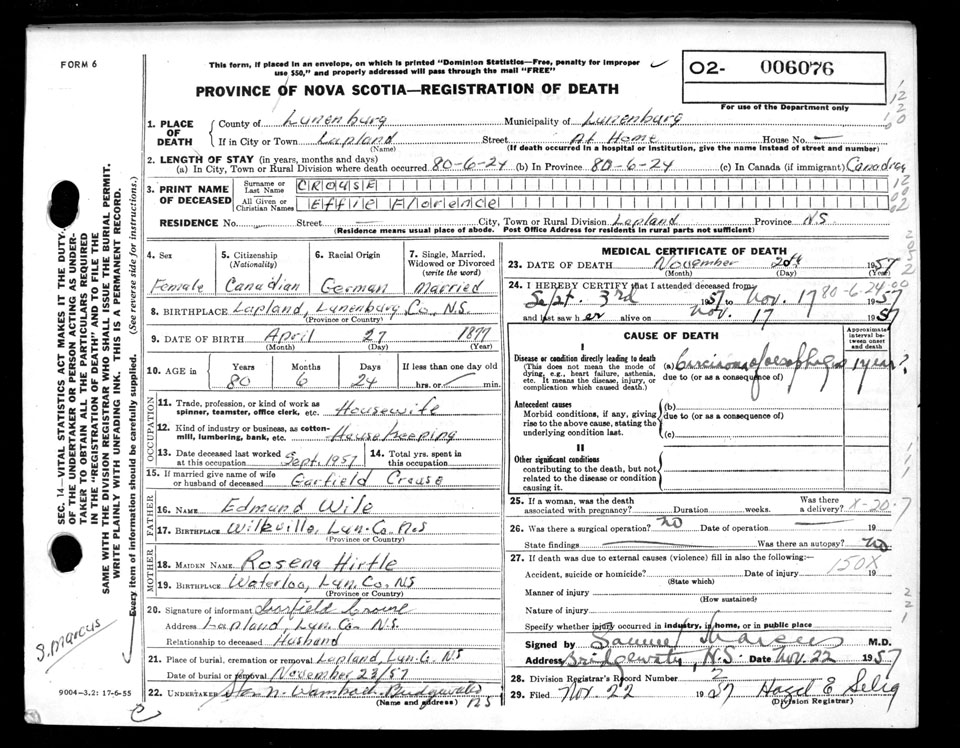 FORM 6
This form, if placed in an envelope, on which is printed "Dominion Statistics—Free, penalty for improper
use $50," and properly addressed will pass through the mail "FREE"
PROVINCE OF NOVA SCOTIA—REGISTRATION OF DEATH
02- 006076
For use of the Department only
1. PLACE OF DEATH
County of Lunenburg Municipality of Lunenburg
If in City or Town Lapland Street At Home House No. —
(Name) (If death occurred in a hospital or institution, give the name instead of street and number)
2. LENGTH OF STAY (in years, months and days)
(a) In City, Town or Rural Division where death occurred 80-6-24 (b) In Province 80-6-24 (c) In Canada (if immigrant) Canadian
3. PRINT NAME OF DECEASED
Surname or Last Name CROUSE
All Given or Christian Names Effie Florence
RESIDENCE No. Street — City, Town or Rural Division Lapland Province N.S.
(Residence means usual place of abode. Post Office Address for residents in rural parts not sufficient)
4. Sex
Female
5. Citizenship (Nationality)
Canadian
6. Racial Origin
German
7. Single, Married, Widowed or Divorced (write the word)
Married
8. BIRTHPLACE Lapland, Lunenburg Co, N.S.
(Province or Country)
9. DATE OF BIRTH April 27 1877
(Month) (Day) (Year)
10. AGE in Years Months Days If less than one day old
80 6 24 hrs. or min.
OCCUPATION
11. Trade, profession, or kind of work as
spinner, teamster, office clerk, etc. Housewife
12. Kind of industry or business, as cotton-
mill, lumbering, bank, etc. House Keeping
13. Date deceased last worked
at this occupation Sept. 1957
14. Total yrs. spent in
this occupation
15. If married give name of wife
or husband of deceased Garfield Crouse
FATHER
16. NAME Edmund Wile
17. BIRTHPLACE Wileville, Lun. Co. N.S
(Province or Country)
MOTHER
18. MAIDEN NAME Rosena Hirtle
19. BIRTHPLACE Waterloo, Lun. Co. NS
(Province or Country)
20. Signature of informant Garfield Crouse
Address Lapland, Lun. Co. N.S.
Relationship to deceased Husband
21. Place of burial, cremation or removal Lapland Lun. Co. NS
Date of burial or removal November 23/57
22. UNDERTAKER N. Wambach Bridgewater
(Name and address) 125
MEDICAL CERTIFICATE OF DEATH
23. DATE OF DEATH November 20th 1957
(Month) (Day) (Year)
24. I HEREBY CERTIFY that I attended deceased from:
80-6-24
Sept. 3rd 1957 to Nov. 17 1957
and last saw her alive on Nov. 17 1957
CAUSE OF DEATH
Approximate interval between onset and death
I
Disease or condition directly leading to death
(This does not mean the mode of
dying, e.g., heart failure, asthenia,
etc. It means the disease, injury, or
complication which caused death.)
(a) Carcinoma of oesophagus 1 year?
due to (or as a consequence of)
Antecedent causes
Morbid conditions, if any, giving
rise to the above cause, stating the
underlying condition last.
(b)
due to (or as a consequence of)
(c)
II
Other significant conditions
contributing to the death, but not
related to the disease or condition
causing it.
25. If a woman, was the death
associated with pregnancy? Duration weeks. Was there
a delivery? X-20-7
26. Was there a surgical operation? no Date of operation 19
State findings Was there an autopsy? no
27. If death was due to external causes (violence) fill in also the following:—
150X
Accident, suicide or homicide? Date of injury 19
(State which)
Manner of injury
(How sustained)
Nature of injury
Specify whether injury occurred in industry, in home, or in public place
Signed by Samuel Marcus M.D.
Address Bridgewater, N.S. Date Nov. 22 1957
28. Division Registrar's Record Number 2
29. Filed Nov 22 1957 Hazel E Selig
(Division Registrar)
SEC. 14—VITAL STATISTICS ACT MAKES IT THE DUTY
OF THE UNDERTAKER OR PERSON ACTING AS UNDER-
TAKER TO OBTAIN ALL THE PARTICULARS REQUIRED
IN THE "REGISTRATION OF DEATH" AND TO FILE THE
SAME WITH THE DIVISION REGISTRAR WHO SHALL ISSUE THE BURIAL PERMIT.
WRITE PLAINLY WITH UNFADING INK. THIS IS A PERMANENT RECORD.
Every item of information should be carefully supplied. (See reverse side for instructions.)
S. Marcus
9004-3.2: 17-6-55